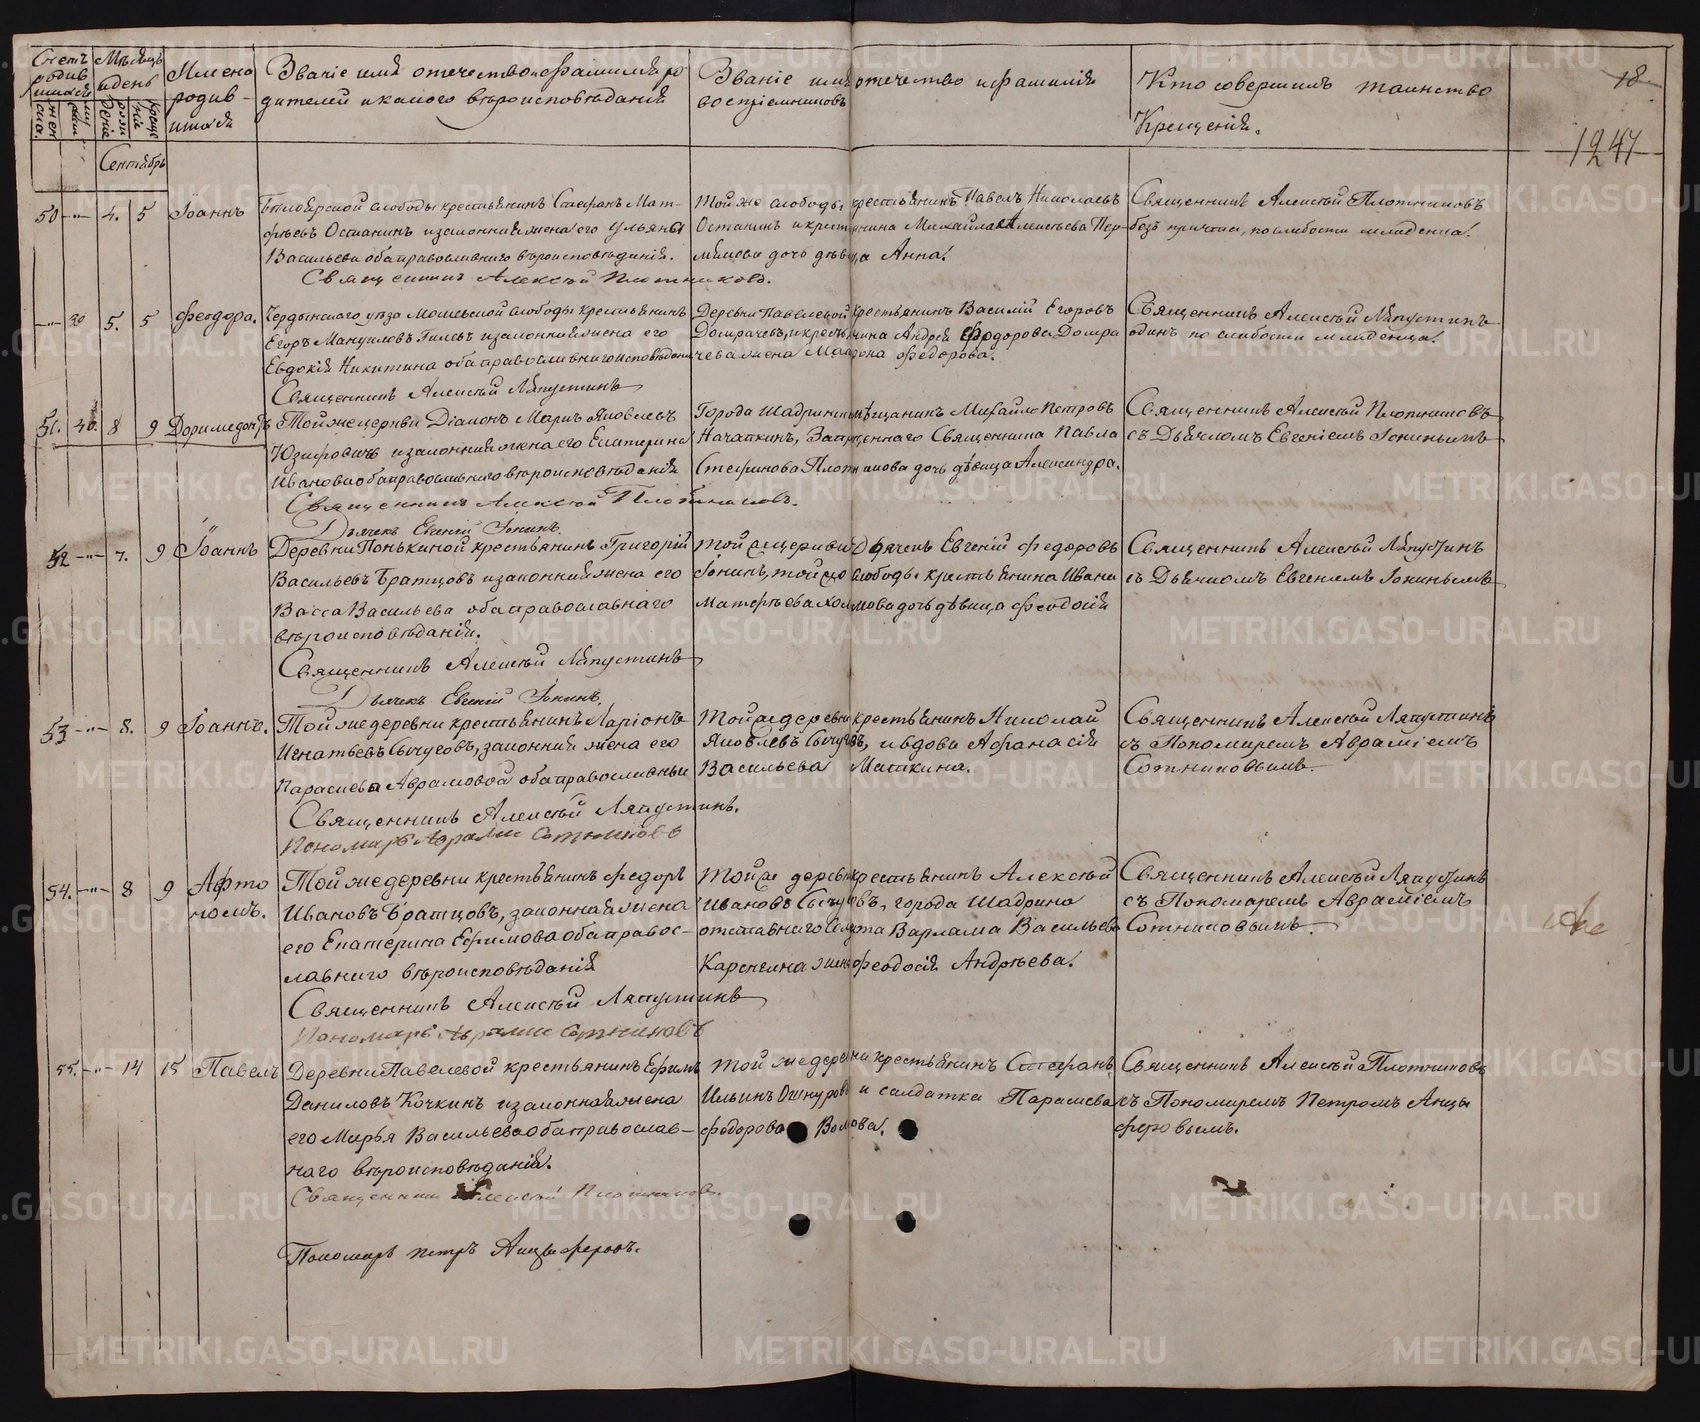 Счетъ родившихся
Мѣсяцъ и день
Имена родившихся
Званіе имя отечество и фамилія родителей и какого вѣроисповѣданія
Званіе имя отечество и фамилія воспріемниковъ
Кто совершилъ таинство Крещенія.
18
1247
Сентябрь
50 -"- 4. 5 Іоаннъ
крестьянинъ Стефанъ Мат-
фѣевъ Останинъ и законная жена его Ульяна
Васильева оба православнаго вѣроисповѣданія.
Священникъ Алексѣй Плотниковъ.
Той же слободы крестьянинъ Павелъ Николаевъ
Останинъ и крестьянина Михайла Алексѣева Пер-
мякова дочь дѣвица Анна.
Священникъ Алексѣй Плотниковъ
безъ причта, по слабости младенца.
-"- 30 5. 5 Феодора.
Чердынскаго уѣзда слободы крестьянинъ
Егоръ Мануиловъ и законная жена его
Евдокія Никитина оба православнаго исповѣданія
Священникъ Алексѣй Ляпустинъ
Деревни Павелевой крестьянинъ Василій Егоровъ
Домрачевъ, и крестьянина Андрея Федорова Домра
чева жена Матрона Федорова.
Священникъ Алексѣй Ляпустинъ
одинъ по слабости младенца.
51. 8 9 Доримедонтъ
Той же церкви Діаконъ Маркъ Яковлевъ
и законная жена его Екатерина
Иванова оба православнаго вѣроисповѣданія
Священникъ Алексѣй Плотниковъ.
Дьячекъ Евгеній Іонинъ.
Города Шадринска мѣщанинъ Михайло Петровъ
Начапкинъ, Запрещеннаго Священника Павла
Стефанова Плотникова дочь дѣвица Александра.
Священникъ Алексѣй Плотниковъ
съ Дьячкомъ Евгеніемъ Іонинымъ
52 -"- 7. 9 Іоаннъ
Деревни Понькиной крестьянинъ Григорій
Васильевъ Братцовъ и законная жена его
Васса Васильева оба православнаго
вѣроисповѣданія.
Священникъ Алексѣй Ляпустинъ
Дьячекъ Евгеній Іонинъ.
Той же церкви Дьячекъ Евгеній Федоровъ
Іонинъ, той же слободы крестьянина Ивана
Матфѣева дочь дѣвица Феодосія
Священникъ Алексѣй Ляпустинъ
съ Дьячкомъ Евгеніемъ Іонинымъ
53 -"- 8. 9 Іоаннъ.
Той же деревни крестьянинъ Ларіонъ
Игнатьевъ Сычуговъ, законная жена его
Парасковья Аврамовой оба православныи
Священникъ Алексѣй Ляпустинъ.
Пономарь Аврамій Сотниковъ
Той же деревни крестьянинъ Николай
Яковлевъ Сычуговъ, и вдова Афанасія
Васильева Маткина.
Священникъ Алексѣй Ляпустинъ
съ Пономаремъ Авраміемъ
Сотниковымъ.
54. -"- 8 9 Авто
номъ.
Той же деревни крестьянинъ Федоръ
Ивановъ Братцовъ, законная жена
его Екатерина Ефимова оба правос-
лавнаго вѣроисповѣданія
Священникъ Алексѣй Ляпустинъ
Пономарь Аврамій Сотниковъ
Той же деревни крестьянинъ Алексѣй
Ивановъ Сычуговъ, города Шадрина
отставнаго Солдата Варлама Васильева
жена Феодосія Андрѣева.
Священникъ Алексѣй Ляпустинъ
съ Пономаремъ Авраміемъ
Сотниковымъ.
55. -"- 14 15 Павелъ
Деревни Павелевой крестьянинъ Ефимъ
Даниловъ Кочкинъ и законная жена
его Марья Васильева оба православ-
наго вѣроисповѣданія.
Священникъ Алексѣй Плотниковъ.
Пономарь Петръ Анцыферовъ.
Той же деревни крестьянинъ Стефанъ
Ильинъ Ошнуровъ и солдатка Парасковья
Федорова Волкова.
Священникъ Алексѣй Плотниковъ
съ Пономаремъ Петромъ Анцы
феровымъ.
METRIKI.GASO-URAL.RU